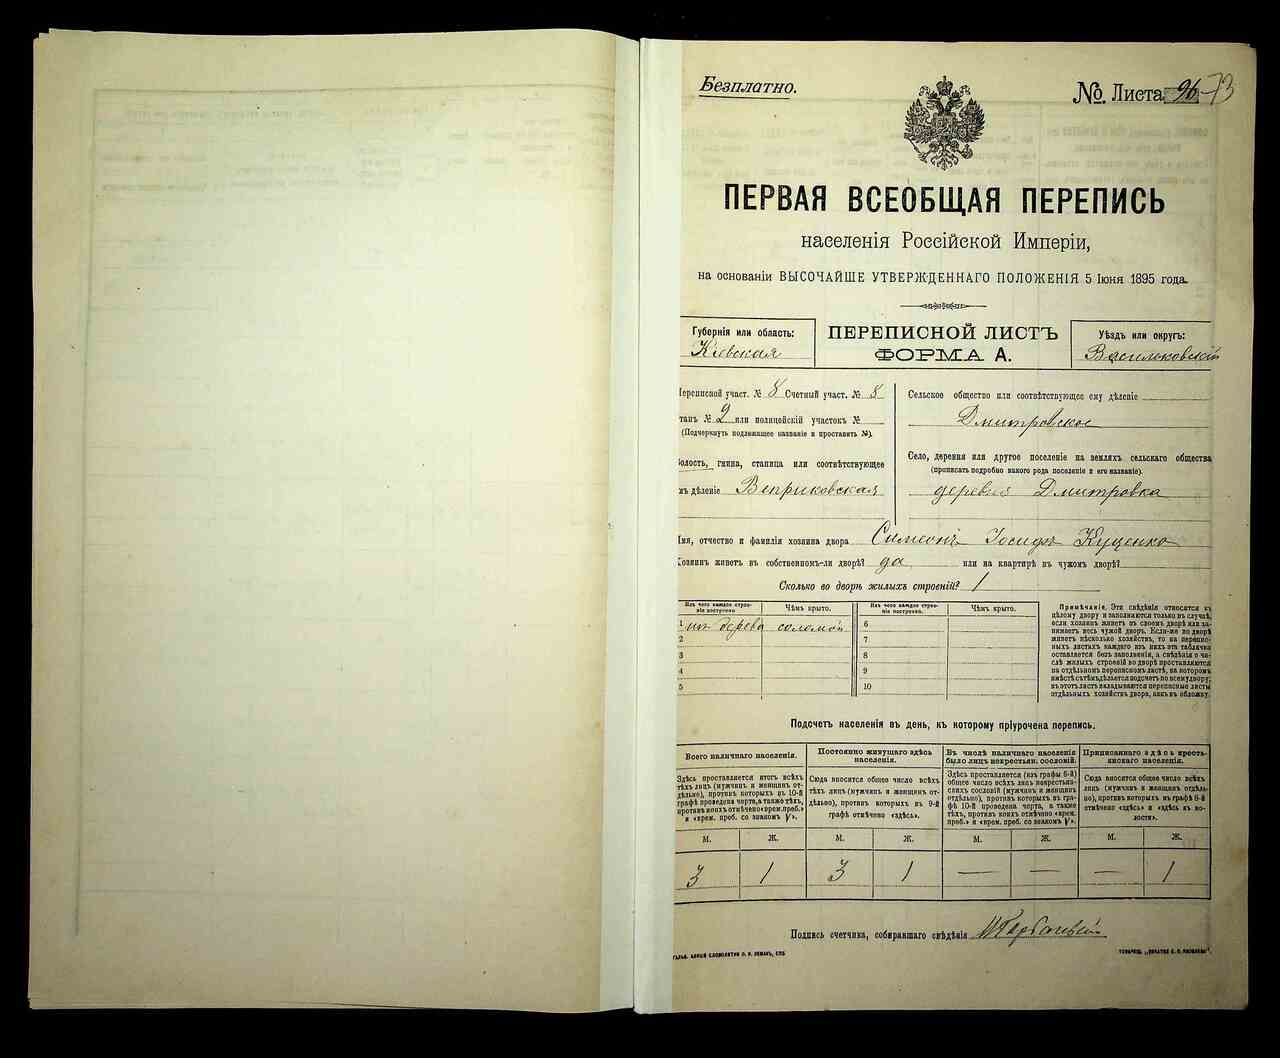 Безплатно.
№ Листа 96 73
ПЕРВАЯ ВСЕОБЩАЯ ПЕРЕПИСЬ
населенія Россійской Имперіи,
на основаніи ВЫСОЧАЙШЕ УТВЕРЖДЕННАГО ПОЛОЖЕНІЯ 5 Іюня 1895 года.
Губернія или область:
Кіевская
ПЕРЕПИСНОЙ ЛИСТЪ
ФОРМА А.
Уѣздъ или округъ:
Васильковскій
Переписной участ. № 8 Счетный участ. № 8
танъ № 2 или полицейскій участокъ №
(Подчеркнуть подлежащее названіе и проставить №).
Волость, гмина, станица или соотвѣтствующее
мъ дѣленіе Веприковская
Сельское общество или соотвѣтствующее ему дѣленіе
Дмитровское
Село, деревня или другое поселеніе на земляхъ сельскаго общества
(прописать подробно какого рода поселеніе и его названіе).
деревня Дмитровка
Имя, отчество и фамилія хозяина двора Симеонъ Іосифъ Куценко
Хозяинъ живетъ въ собственномъ-ли дворѣ? да или на квартирѣ въ чужомъ дворѣ?
Сколько во дворѣ жилыхъ строеній? 1
Изъ чего каждое строе-
ніе построено.
Чѣмъ крыто.
Изъ чего каждое строе-
ніе построено.
Чѣмъ крыто.
1 изъ дерева соломой
2
3
4
5
6
7
8
9
10
Примѣчаніе. Эти свѣдѣнія относятся къ
цѣлому двору и заполняются только въ случаѣ,
если хозяинъ живетъ въ своемъ дворѣ или за-
нимаетъ весь чужой дворъ. Если-же во дворѣ
живетъ нѣсколько хозяйствъ, то на перепис-
ныхъ листахъ каждаго изъ нихъ эта табличка
оставляется безъ заполненія, а свѣдѣнія о чи-
слѣ жилыхъ строеній во дворѣ проставляются
на отдѣльномъ переписномъ листѣ, на которомъ
вмѣстѣ съ тѣмъ дѣлается подсчетъ по всему двору;
въ этотъ листъ вкладываются переписные листы
отдѣльныхъ хозяйствъ двора, какъ въ обложку.
Подсчетъ населенія въ день, къ которому пріурочена перепись.
Всего наличнаго населенія.
Здѣсь проставляется итогъ всѣхъ
тѣхъ лицъ (мужчинъ и женщинъ от-
дѣльно), противъ которыхъ въ 10-й
графѣ проведена черта, а также тѣхъ,
противъ коихъ отмѣчено «врем. преб.»
и «врем. преб. со знакомъ V».
Постоянно живущаго здѣсь
населенія.
Сюда вносится общее число всѣхъ
тѣхъ лицъ (мужчинъ и женщинъ от-
дѣльно), противъ которыхъ въ 9-й
графѣ отмѣчено «здѣсь».
Въ числѣ наличнаго населенія
было лицъ некрестьян. сословій.
Здѣсь проставляется (изъ графы 6-й)
общее число всѣхъ лицъ некрестьян-
скихъ сословій (мужчинъ и женщинъ
отдѣльно), противъ которыхъ въ гра-
фѣ 10-й проведена черта, а также
тѣхъ, противъ коихъ отмѣчено «врем.
преб.» и «врем. преб. со знакомъ V».
Приписаннаго здѣсь кресть-
янскаго населенія.
Сюда вносится общее число всѣхъ
лицъ (мужчинъ и женщинъ отдѣль-
но), противъ которыхъ въ графѣ 8-й
отмѣчено «здѣсь» и «здѣсь въ во-
лости».
М. Ж. М. Ж. М. Ж. М. Ж.
3 1 3 1 — — — 1
Подпись счетчика, собиравшаго свѣдѣнія